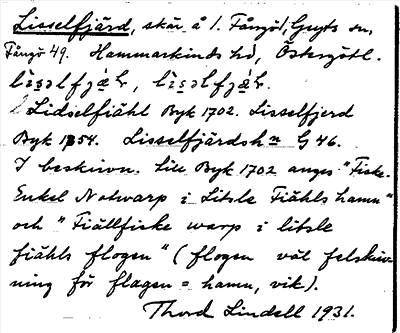 Lisselfjärd, skär å 1. Fångö, Gryts sn,
Fångö 49. Hammarkinds hd, Östergötl.
Lidselfiähl Byk 1702. Lisselfjerd
Byk 1854. Lisselfjärdshn G 46.
I beskrivn. till Byk 1702 anges "Fiske-
Enkel Notwarp i Litsle Fiähls hamn"
och "Fiällfiske warp i litsle
fiähls flogen" (flogen väl felskriv-
ning för flagen = hamn, vik).
Thord Lindell 1931.